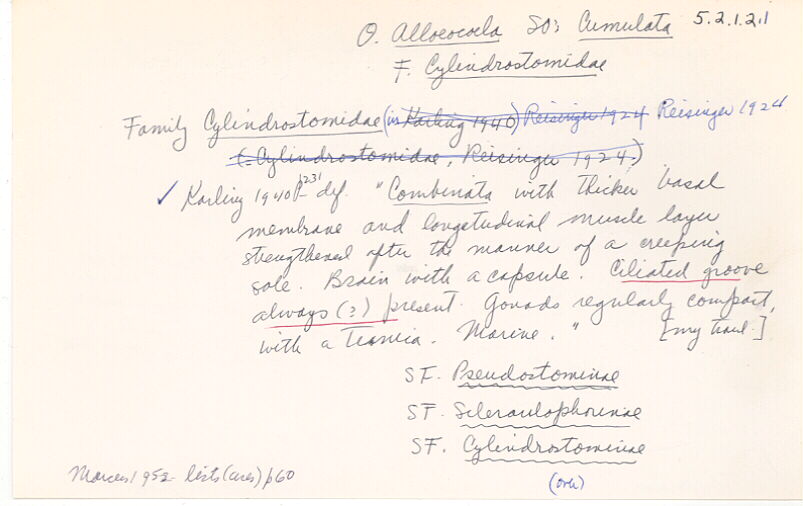 O. Alloeocoela SO: Cumulata 5.2.1.2.1
F. Cylindrostomidae
Family Cylindrostomidae (in Karling 1940) Reisinger 1924 Reisinger 1924
(= Cylindrostomidae, Reisinger 1924.)
✓ Karling 1940 p231 def. "Combinata with thicker basal
membrane and longitudinal muscle layer
strengthened after the manner of a creeping
sole. Brain with a capsule. Ciliated groove
always (?) present. Gonads regularly compact,
with a Tunica. Marine." [my tranl.]
SF. Pseudostominae
SF. Scleraulophorinae
SF. Cylindrostominae
Marcus 1952 lists (ares) p60
(over)